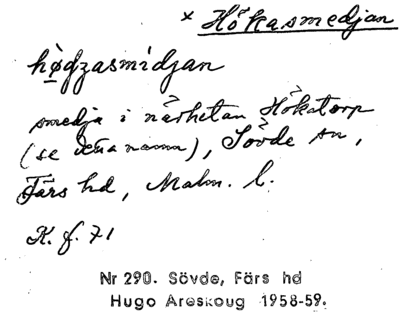 × Hökasmedjan
hø̀gzasmìdjan
smedja i närhetan Hökatorp
(se detta namn), Sövde sn,
Färs hd, Malm. l.
K. f. 71
Nr 290. Sövde, Färs hd
Hugo Areskoug 1958-59.